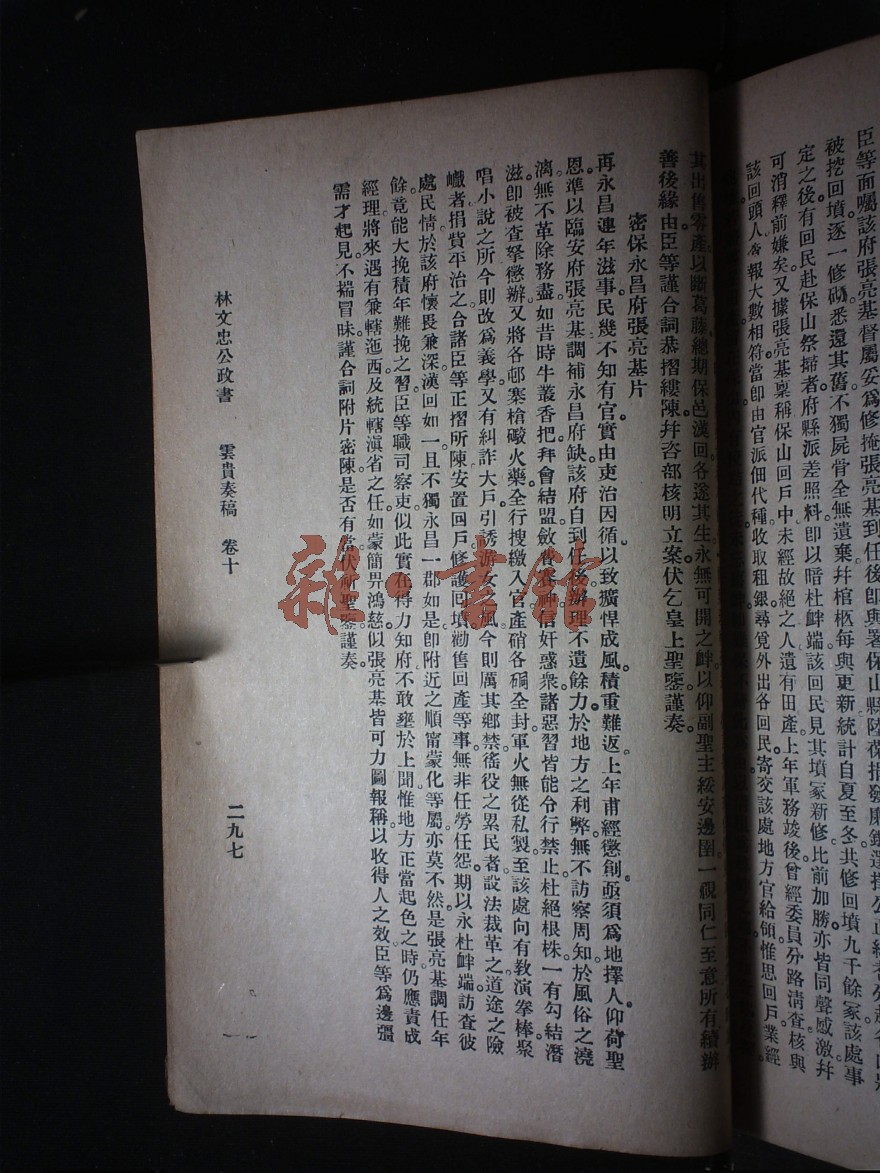 臣等面囑該府張亮基督屬妥爲修掩張亮基到任後卽與署保山縣
被挖回墳逐一修砌悉還其舊不獨屍骨全無遺棄幷棺柩每與更新統計自夏至冬共修回墳九千餘冢該處事
定之後有回民赴保山祭掃者府縣派差照料卽以暗杜衅端該回民見其墳冢新修比前加勝亦皆同聲感激幷
可消釋前嫌矣又據張亮基稟稱保山回戶中未經故絕之人遺有田產上年軍務竣後曾經委員分路淸查核與
該回頭人舍報大數相符當卽由官派佃代種收取租銀尋覓外出各回民寄交該處地方官給領惟思回戶業經
其出售零產以斷葛藤總期保邑漢回各遂其生永無可開之衅以仰副聖主綏安邊圉一視同仁至意所有續辦
善後緣由臣等謹合詞恭摺縷陳幷咨部核明立案伏乞皇上聖鑒謹奏。
密保永昌府張亮基片
再永昌連年滋事民幾不知有官實由吏治因循以致獷悍成風積重難返上年甫經懲創亟須爲地擇人仰荷聖
恩準以臨安府張亮基調補永昌府缺該府自到任後辦理不遺餘力於地方之利弊無不訪察周知於風俗之澆
漓無不革除務盡如昔時牛叢香把拜會結盟斂信奸惑衆諸惡習皆能令行禁止杜絕根株一有勾結潛
滋卽被查拏懲辦又將各邨寨槍礮火藥全行搜繳入官產硝各硐全封軍火無從私製至該處向有敎演拳棒聚
唱小說之所今則改爲義學又有糾詐大戶引誘游女風今則厲其鄕禁徭役之累民者設法裁革之道途之險
巇者捐貲平治之合諸臣等正摺所陳安置回戶修護回墳勸售回產等事無非任勞任怨期以永杜衅端訪查彼
處民情於該府懷畏兼深漢回如一且不獨永昌一郡如是卽附近之順甯蒙化等屬亦莫不然是張亮基調任年
餘竟能大挽積年難挽之習臣等職司察吏似此實在得力知府不敢壅於上聞惟地方正當起色之時仍應責成
經理將來遇有兼轄迤西及統轄滇省之任如蒙簡畀鴻慈似張亮基皆可力圖報稱以收得人之效臣等爲邊疆
需才起見不揣冒昧謹合詞附片密陳是否有當伏祈聖鑒謹奏。
林文忠公政書　雲貴奏稿　卷十
二九七
雜·書館